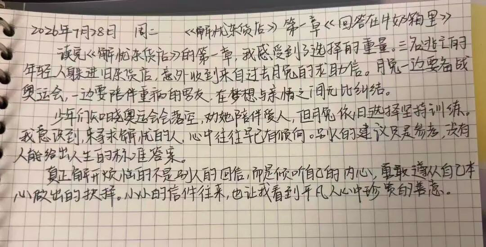 2026年7月28日 周二 《解忧杂货店》第一章《回答在牛奶箱里》
读完《解忧杂货店》的第一章,我感受到了选择的重量。三名逃亡的
年轻人躲进旧杂货店,意外收到来自过去月兔的求助信。月兔一边要备战
奥运会,一边要陪伴重病的男友,在梦想与亲情之间无比纠结。
少年们知晓奥运会会落空,劝她陪伴爱人,但月兔依旧选择坚持训练。
我意识到,来寻求解忧的人,心中往往早已有倾向。别人的建议只是参考,没有
人能给出人生的标准答案。
真正解开烦恼的不是别人的回信,而是倾听自己的内心,勇敢遵从自己本
心做出的抉择。小小的信件往来,也让我看到平凡人心中珍贵的善意。